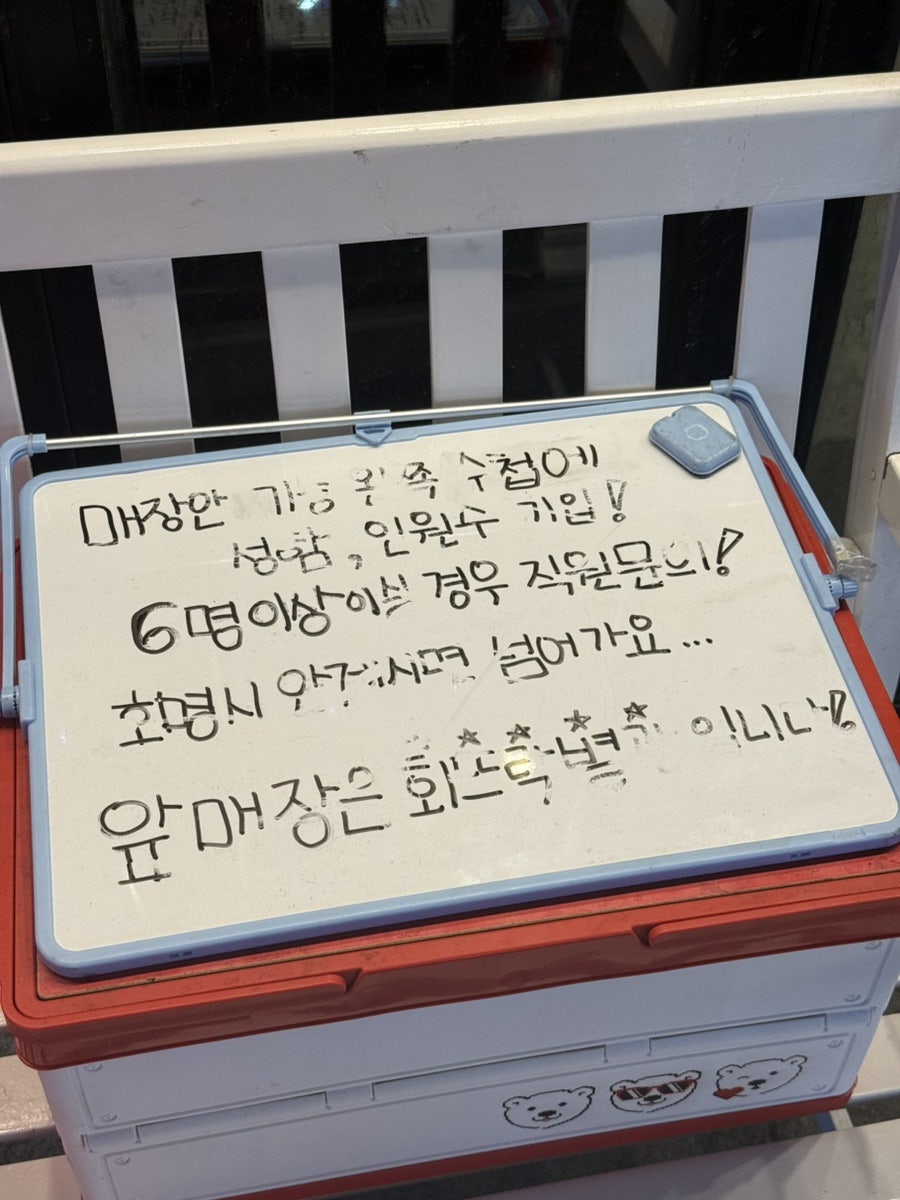 매장안 가장 왼쪽 수첩에
성함, 인원수 기입!
6명이상이실 경우 직원문의!
호명시 안계시면 넘어가요...
앞매장은 입니다!